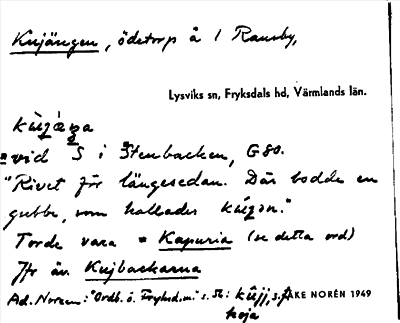 Kujängen, ödetorp å 1 Ransby,
Lysviks sn, Fryksdals hd, Värmlands län.
vid S i Stenbacken, G80.
"Rivet för längesedan. Där bodde en
gubbe, som kallades
Torde vara = Kapuria (se detta ord)
Jfr äv. Kujbackarna
Ad. Noreen: "Ordb. ö. Fryksd.m." s. 56: kùjj, s.f.
koja
ÅKE NORÉN 1949